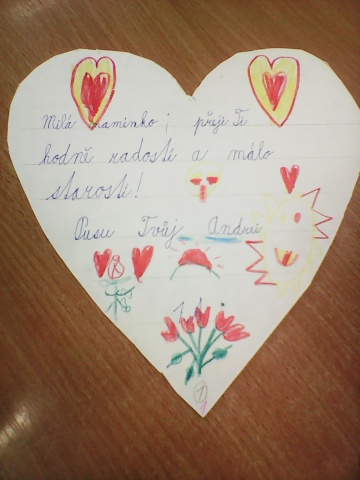 Milá maminko; přeji Ti
hodně radosti a málo
starostí!
Pusu Tvůj Andre
1
1